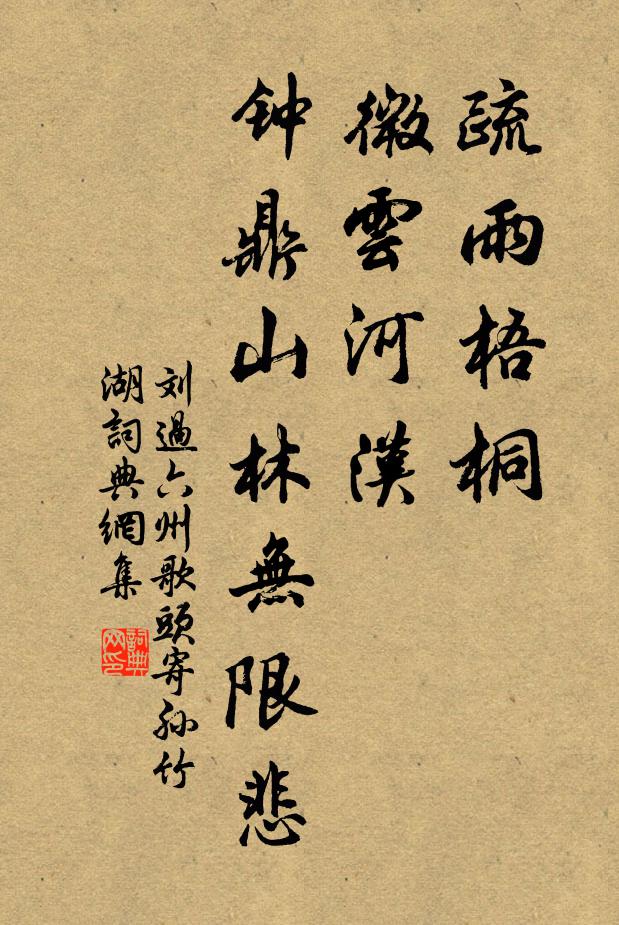 疏雨梧桐
微雲河漢
钟鼎山林無限悲
刘過六州歌頭寄孙竹
湖詞典網集
詞典
网印